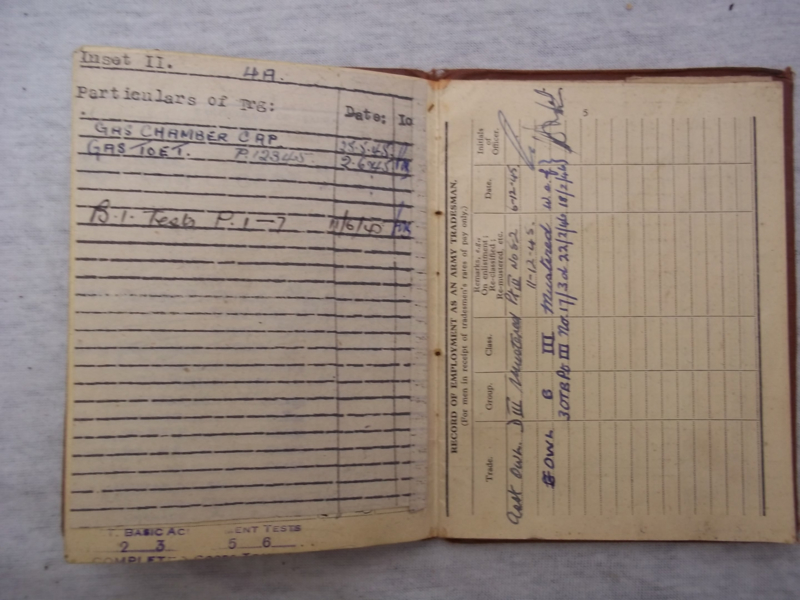 Inset II.
4A.
Particulars of Trg: Date: In
GAS CHAMBER CAP 25.5.45
GAS TOET. P.12345 2-6-45
B.1. Tests P. 1-7 11/6/45
BASIC ENT TESTS
2 3 5 6
COMPLET
5
RECORD OF EMPLOYMENT AS AN ARMY TRADESMAN.
(For men in receipt of tradesmen's rates of pay only.)
Trade. Group. Class. Remarks, e.g., On enlistment; Re-classified; Re-mustered, etc. Date. Initials of Officer.
Asst Owl. D III Mustered Pt III No 52 6-12-45
11-12-45.
OWL B III Mustered w.e.f. 18/2/46
30TB Pt III No. 17/3 d 22/2/46